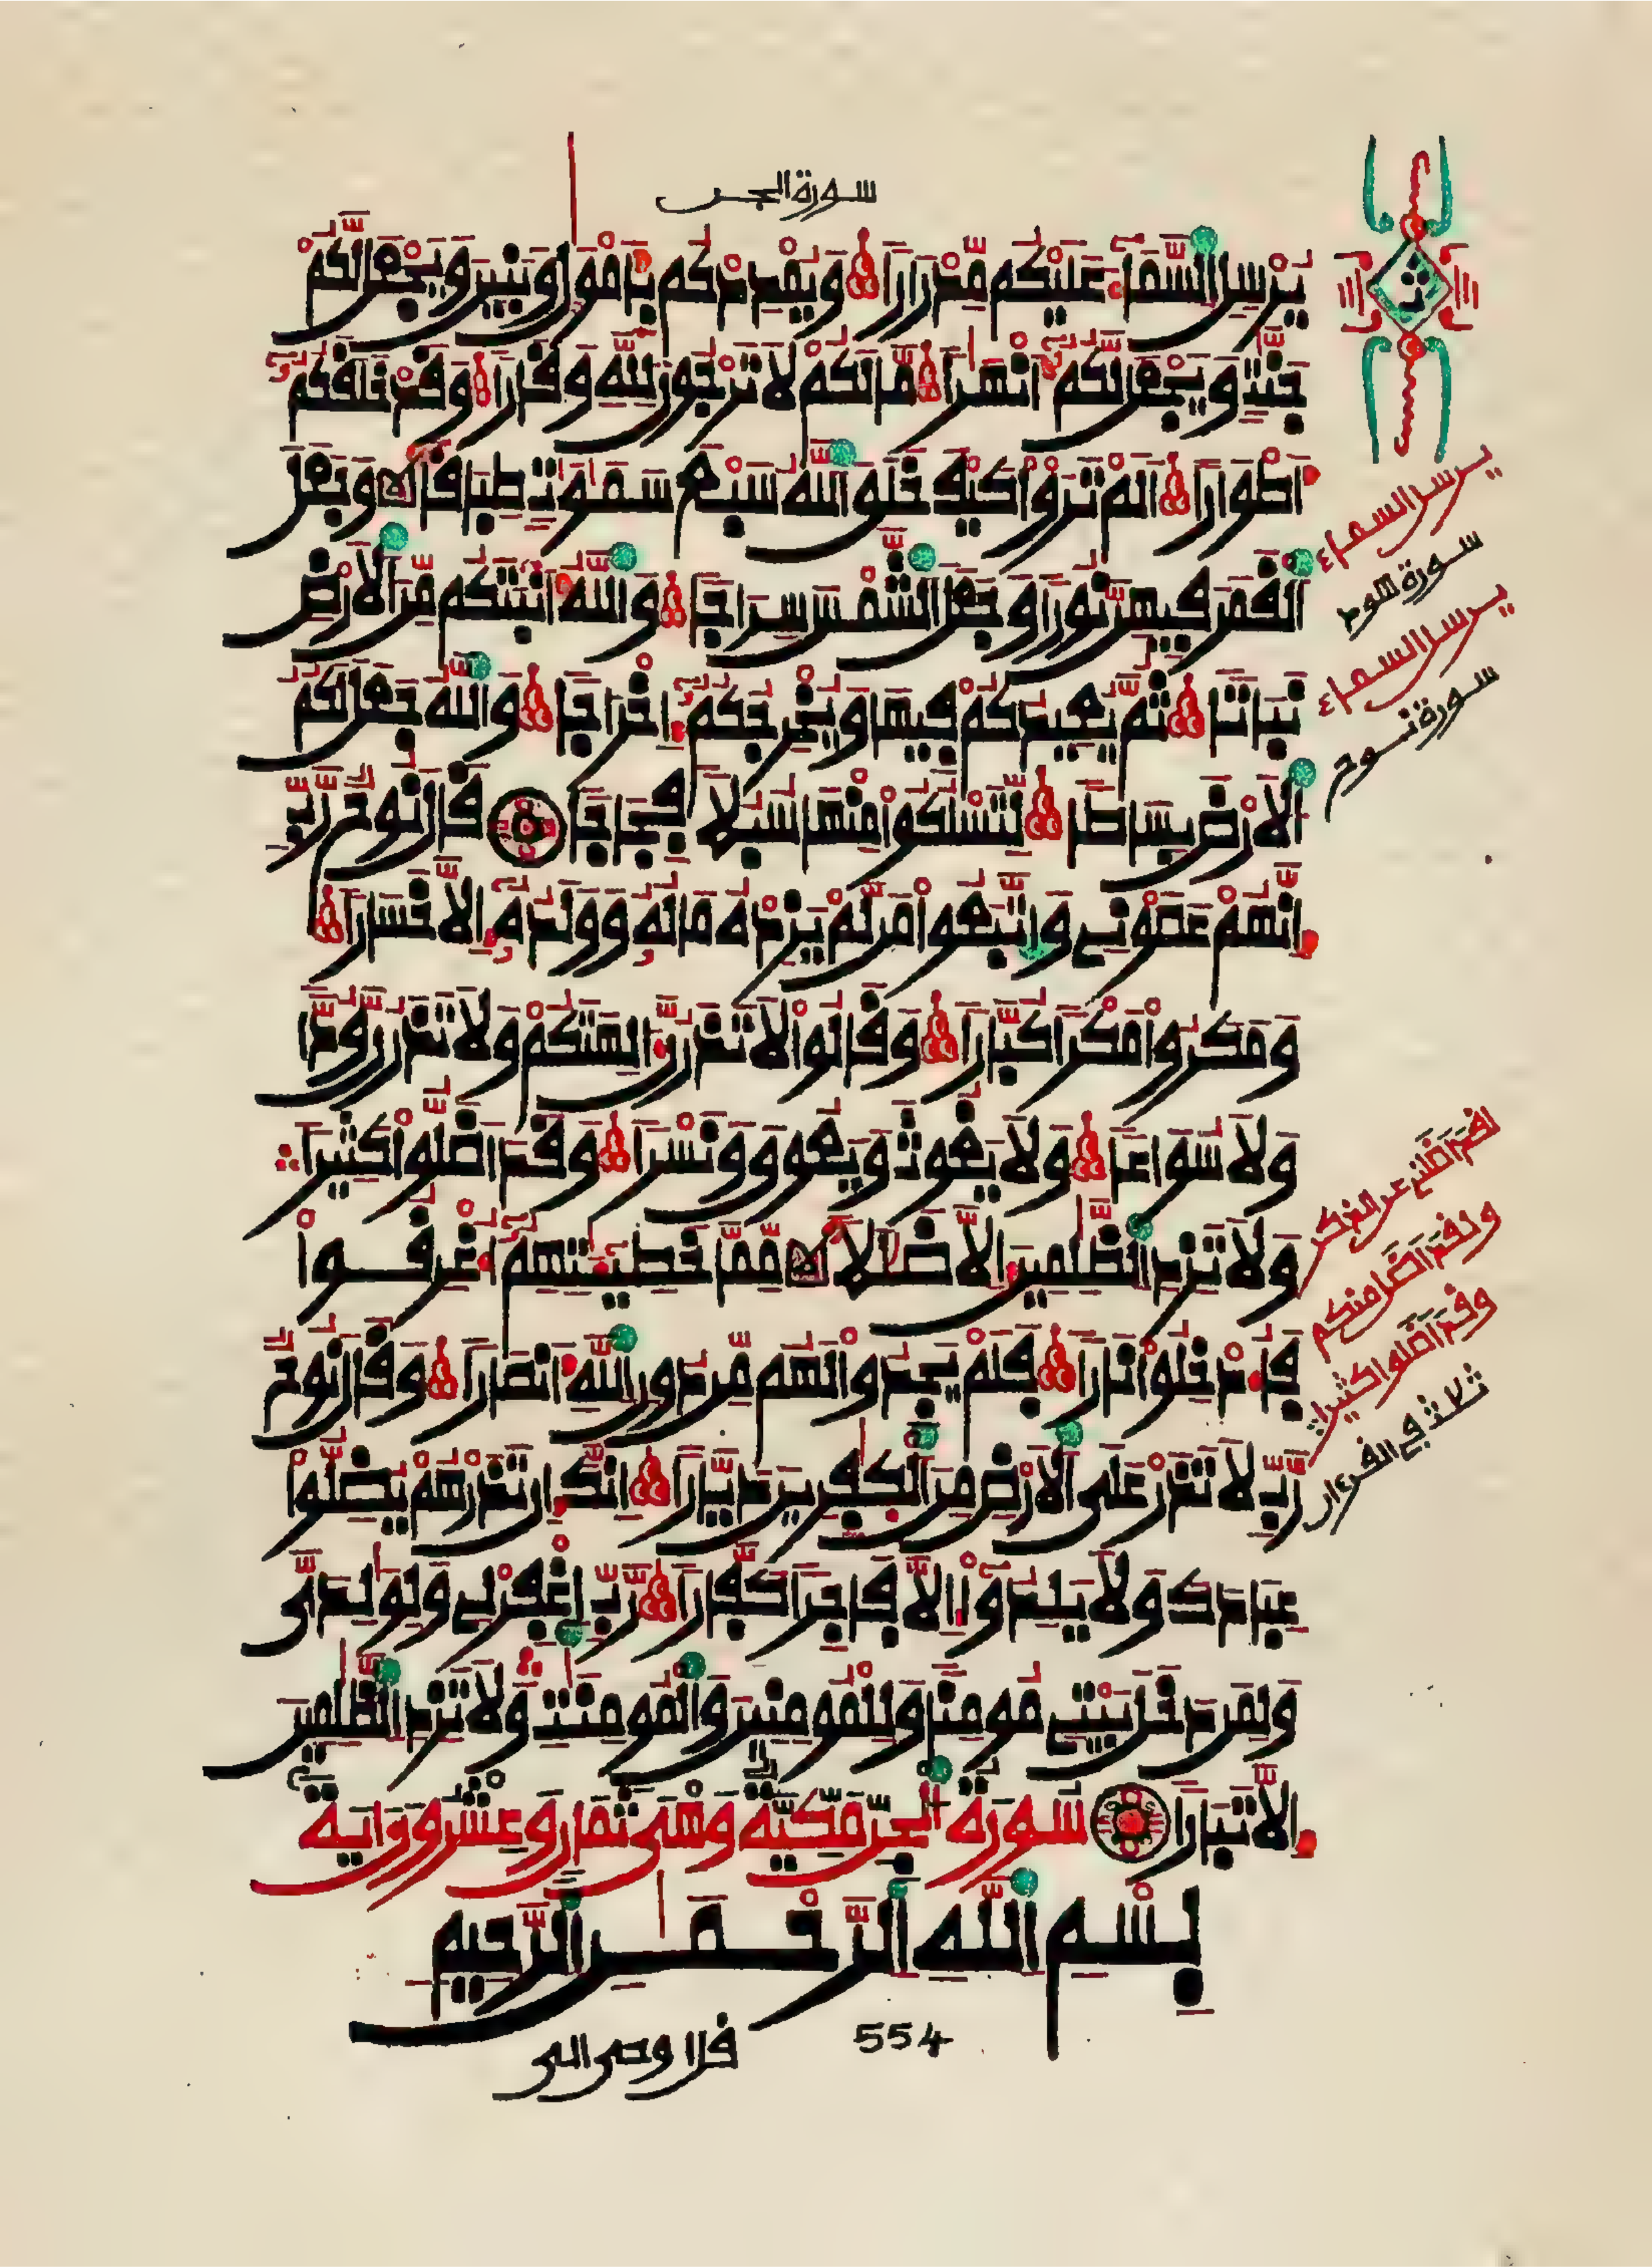 سورة الجن
يُرْسِلِ السَّمَآءَ عَلَيْكُم مِّدْرَارًا وَيُمْدِدْكُم بِأَمْوَٰلٍ وَبَنِينَ وَيَجْعَل لَّكُمْ
جَنَّٰتٍ وَيَجْعَل لَّكُمُۥٓ أَنْهَٰرًا مَّا لَكُمْ لَا تَرْجُونَ لِلَّهِ وَقَارًا وَقَدْ خَلَقَكُمُۥٓ
أَطْوَارًا أَلَمْ تَرَوْا۟ كَيْفَ خَلَقَ ٱللَّهُ سَبْعَ سَمَٰوَٰتٍ طِبَاقًا وَجَعَلَ
ٱلْقَمَرَ فِيهِنَّ نُورًا وَجَعَلَ ٱلشَّمْسَ سِرَاجًا وَٱللَّهُ أَنۢبَتَكُم مِّنَ ٱلْأَرْضِ
نَبَاتًا ثُمَّ يُعِيدُكُمْ فِيهَا وَيُخْرِجُكُمُۥٓ إِخْرَاجًا وَٱللَّهُ جَعَلَ لَكُمُ
ٱلْأَرْضَ بِسَاطًا لِّتَسْلُكُوا۟ مِنْهَا سُبُلًا فِجَاجًا قَالَ نُوحٌ رَّبِّ
إِنَّهُمْ عَصَوْنِي وَٱتَّبَعُوا۟ مَن لَّمْ يَزِدْهُ مَالُهُۥ وَوَلَدُهُۥٓ إِلَّا خَسَارًا
وَمَكَرُوا۟ مَكْرًا كُبَّارًا وَقَالُوا۟ لَا تَذَرُنَّ ءَالِهَتَكُمْ وَلَا تَذَرُنَّ وُدًّا
وَلَا سُوَاعًا وَلَا يَغُوثَ وَيَعُوقَ وَنَسْرًا وَقَدْ أَضَلُّوا۟ كَثِيرًا
وَلَا تَزِدِ ٱلظَّٰلِمِينَ إِلَّا ضَلَٰلًا مِّمَّا خَطِيٓـَٰٔتِهِمُۥٓ أُغْرِقُوا۟
فَأُدْخِلُوا۟ نَارًا فَلَمْ يَجِدُوا۟ لَهُم مِّن دُونِ ٱللَّهِ أَنصَارًا وَقَالَ نُوحٌ
رَّبِّ لَا تَذَرْ عَلَى ٱلْأَرْضِ مِنَ ٱلْكَٰفِرِينَ دَيَّارًا إِنَّكَ إِن تَذَرْهُمْ يُضِلُّوا۟
عِبَادَكَ وَلَا يَلِدُوٓا۟ إِلَّا فَاجِرًا كَفَّارًا رَّبِّ ٱغْفِرْ لِي وَلِوَٰلِدَيَّ
وَلِمَن دَخَلَ بَيْتِي مُومِنًا وَلِلْمُومِنِينَ وَٱلْمُومِنَٰتِ وَلَا تَزِدِ ٱلظَّٰلِمِينَ
إِلَّا تَبَارًا سُورَةُ ٱلْجِنِّ مَكِّيَّةٌ وَهِيَ ثَمَانٍ وَعِشْرُونَ ءَايَةً
بِسْمِ ٱللَّهِ ٱلرَّحْمَٰنِ ٱلرَّحِيمِ
قل اوحى الى
554
ثمن
يرسل السماء
سورة هود
يرسل السماء
سورة نوح
لقد اضلني عن الذكر
ولقد اضل منكم
وقد اضلوا كثيرا
ثلاث في القرءان